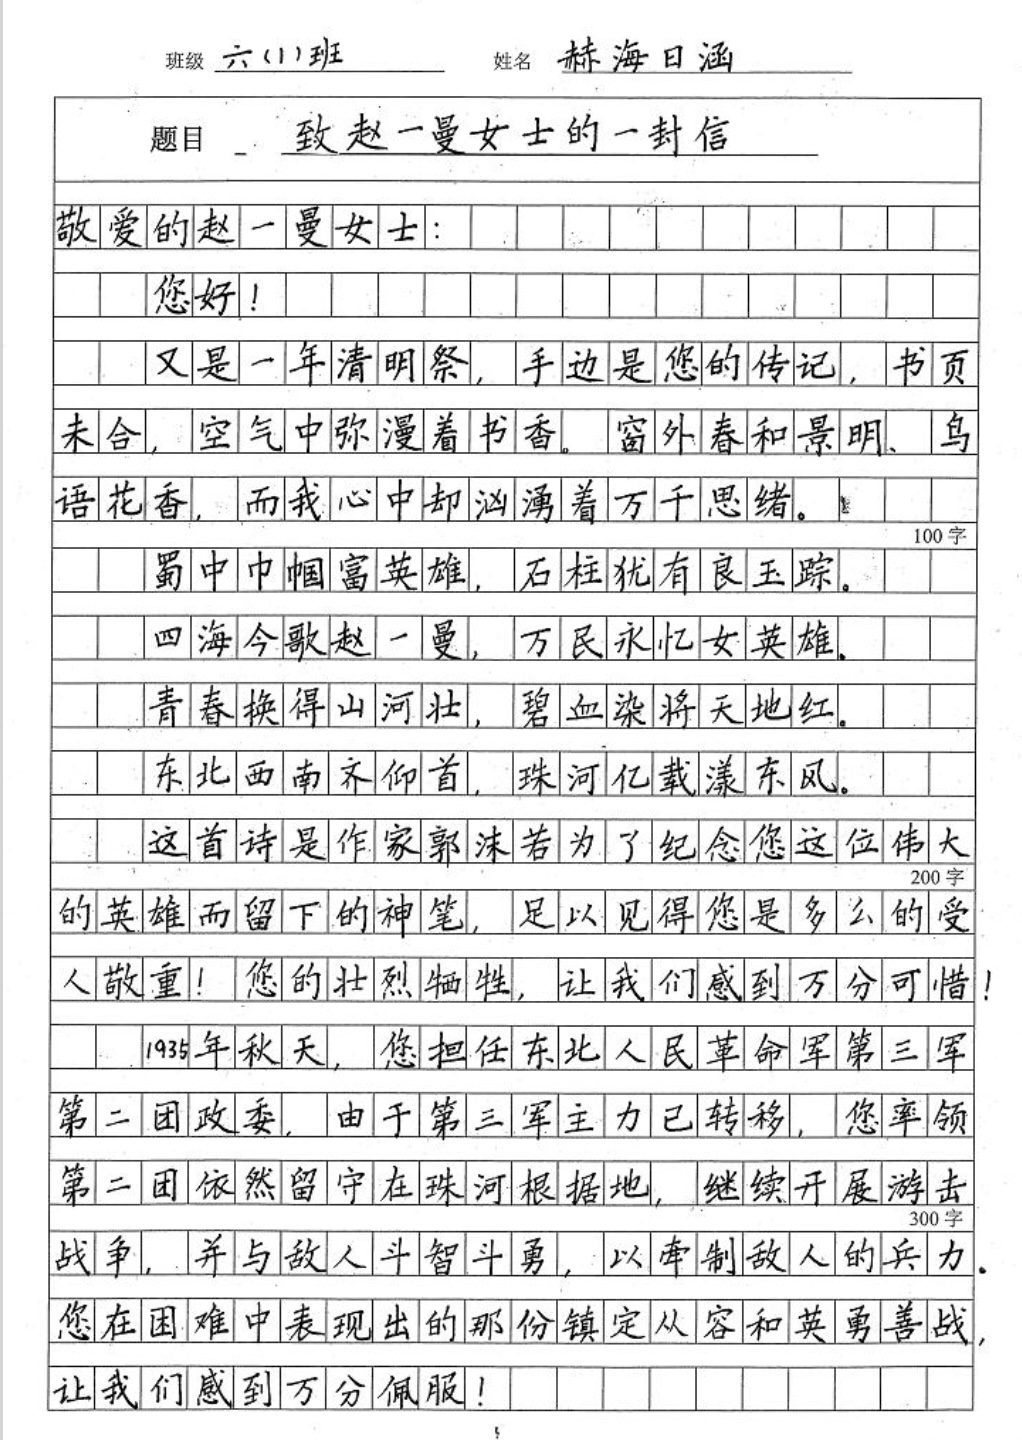 班级 六(1)班 姓名 赫海日涵
题目 致赵一曼女士的一封信
敬爱的赵一曼女士：
您好！
又是一年清明祭，手边是您的传记，书页
未合，空气中弥漫着书香。窗外春和景明、鸟
语花香，而我心中却汹涌着万千思绪。
100字
蜀中巾帼富英雄，石柱犹有良玉踪。
四海今歌赵一曼，万民永忆女英雄。
青春换得山河壮，碧血染将天地红。
东北西南齐仰首，珠河亿载漾东风。
这首诗是作家郭沫若为了纪念您这位伟大
200字
的英雄而留下的神笔，足以见得您是多么的受
人敬重！您的壮烈牺牲，让我们感到万分可惜！
1935年秋天，您担任东北人民革命军第三军
第二团政委，由于第三军主力已转移，您率领
第二团依然留守在珠河根据地，继续开展游击
300字
战争，并与敌人斗智斗勇，以牵制敌人的兵力。
您在困难中表现出的那份镇定从容和英勇善战，
让我们感到万分佩服！